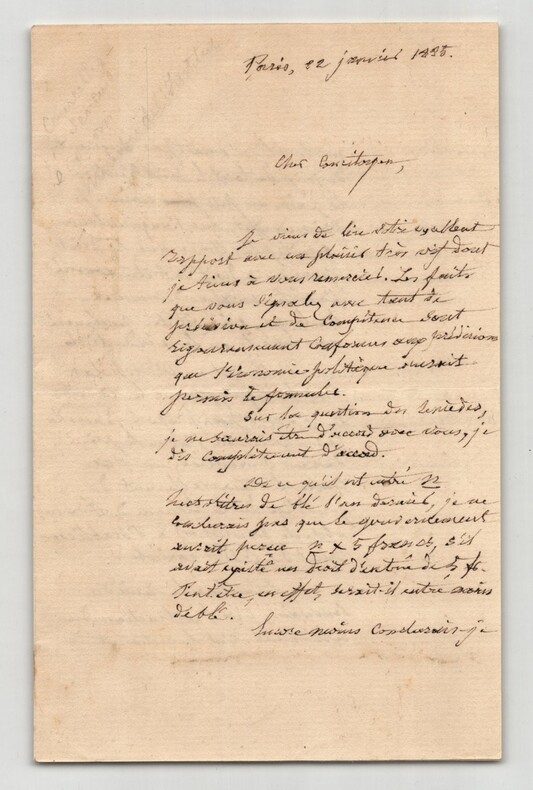 Paris, 22 janvier 188
Cher Concitoyen,
Je viens de lire votre excellent
rapport avec un plaisir très vif dont
je tiens à vous remercier. Les faits
que vous signalez avec tant de
précision et de compétence sont
rigoureusement conformes aux prévisions
que l'économie politique aurait
permis de formuler.
Sur la question des remèdes,
je ne saurais être d'accord avec vous, je
dis complètement d'accord.
De ce qu'il est entré n
hectolitres de blé l'an dernier, je ne
conclurais pas que le gouvernement
aurait perçu n x 5 francs, s'il
avait existé un droit d'entrée de 5 fr.
Peut-être, en effet, serait-il entré moins
de blé.
Encore moins conclurais-je